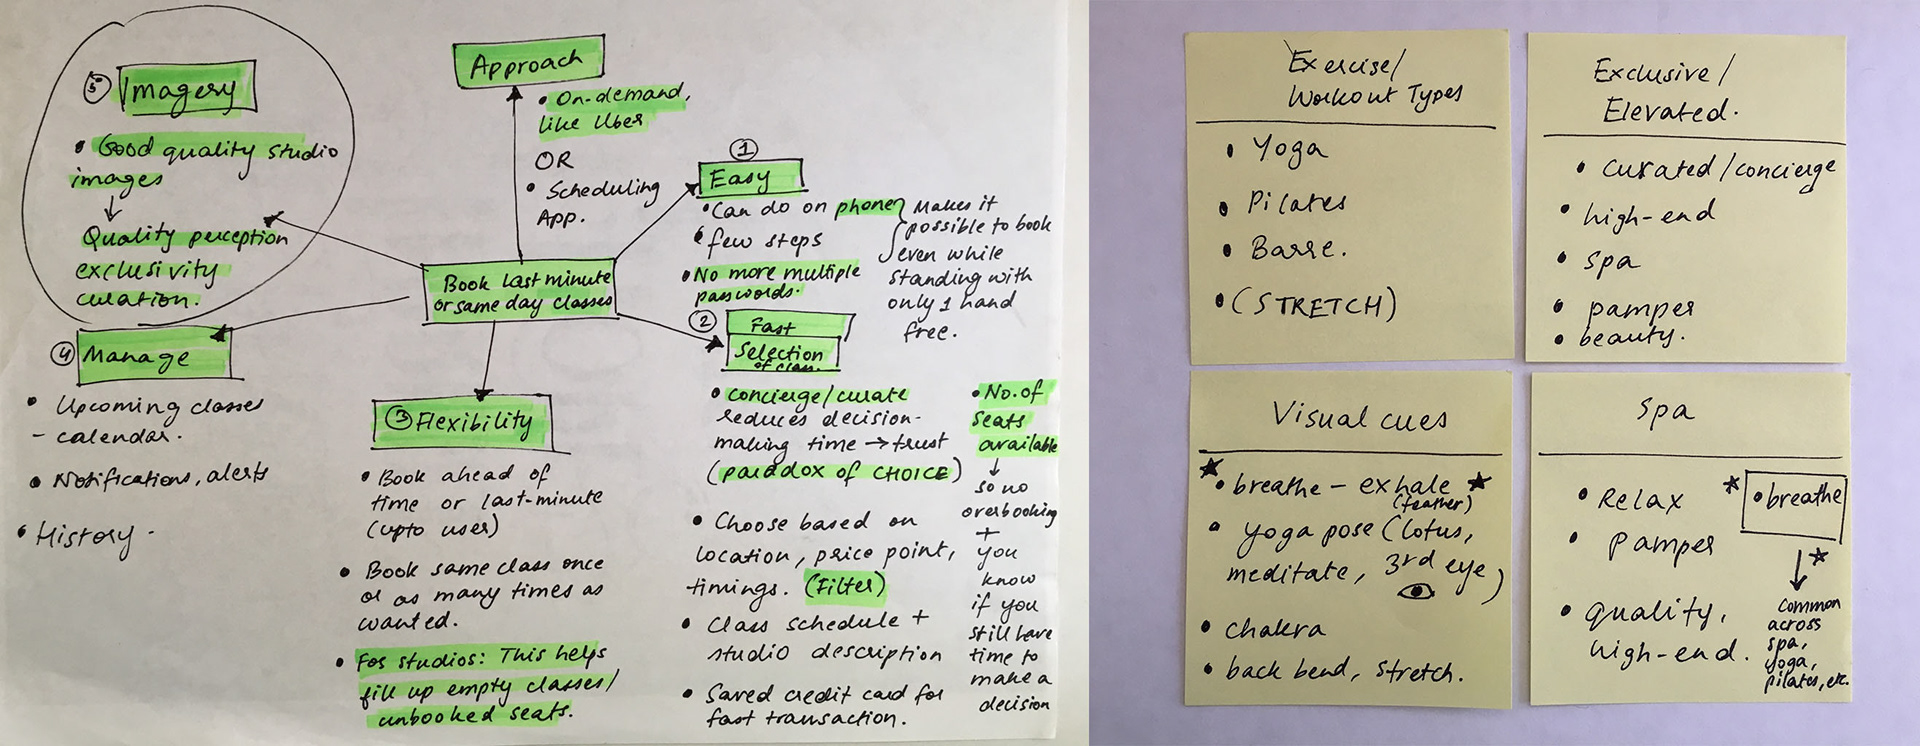 ⑤ Imagery
• Good quality studio
images
↓
Quality perception
exclusivity
curation.
Approach
• On-demand,
like Uber
OR
• Scheduling
App.
①
Easy
• Can do on phone
• few steps
• No more multiple
passwords.
Makes it
possible to book
even while
standing with
only 1 hand
free.
Book last minute
or same day classes
② Fast
Selection
of class.
• concierge/curate
reduces decision-
making time → trust
(paradox of CHOICE)
• Choose based on
location, price point,
timings. (Filter)
• Class schedule +
studio description
• Saved credit card for
fast transaction.
• No. of
seats
available
↓
so no
overbooking
+
you
know
if you
still have
time to
make a
decision
③ Flexibility
• Book ahead of
time or last-minute
(upto user)
• Book same class once
or as many times as
wanted.
• For studios: This helps
fill up empty classes/
unbooked seats.
④ Manage
• Upcoming classes
- calendar.
• Notifications, alerts
• History.
Exercise/
Workout Types
• Yoga
• Pilates
• Barre.
• (STRETCH)
Exclusive/
Elevated.
• curated/concierge
• high-end
• spa
• pamper
• beauty.
Visual cues
★ • breathe - exhale ★
(feather)
• yoga pose (lotus,
meditate, 3rd eye)
• chakra
• back bend, stretch.
Spa
• Relax
• Pamper
• quality,
high-end.
★ • breathe
↓ ★
common
across
spa,
yoga,
pilates, etc.